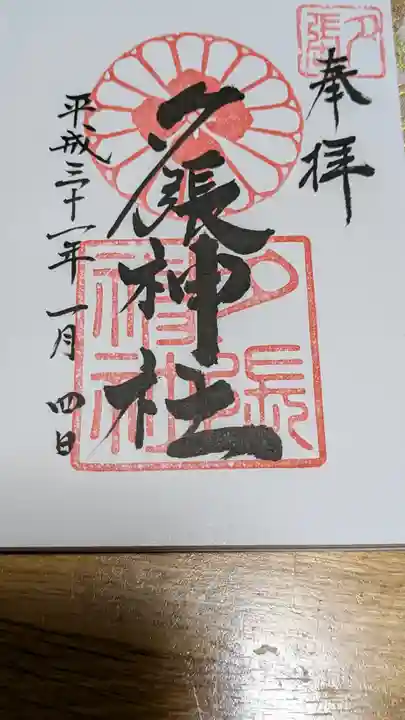 奉拝
夕張
夕張神社
夕張神社
平成三十一年一月四日